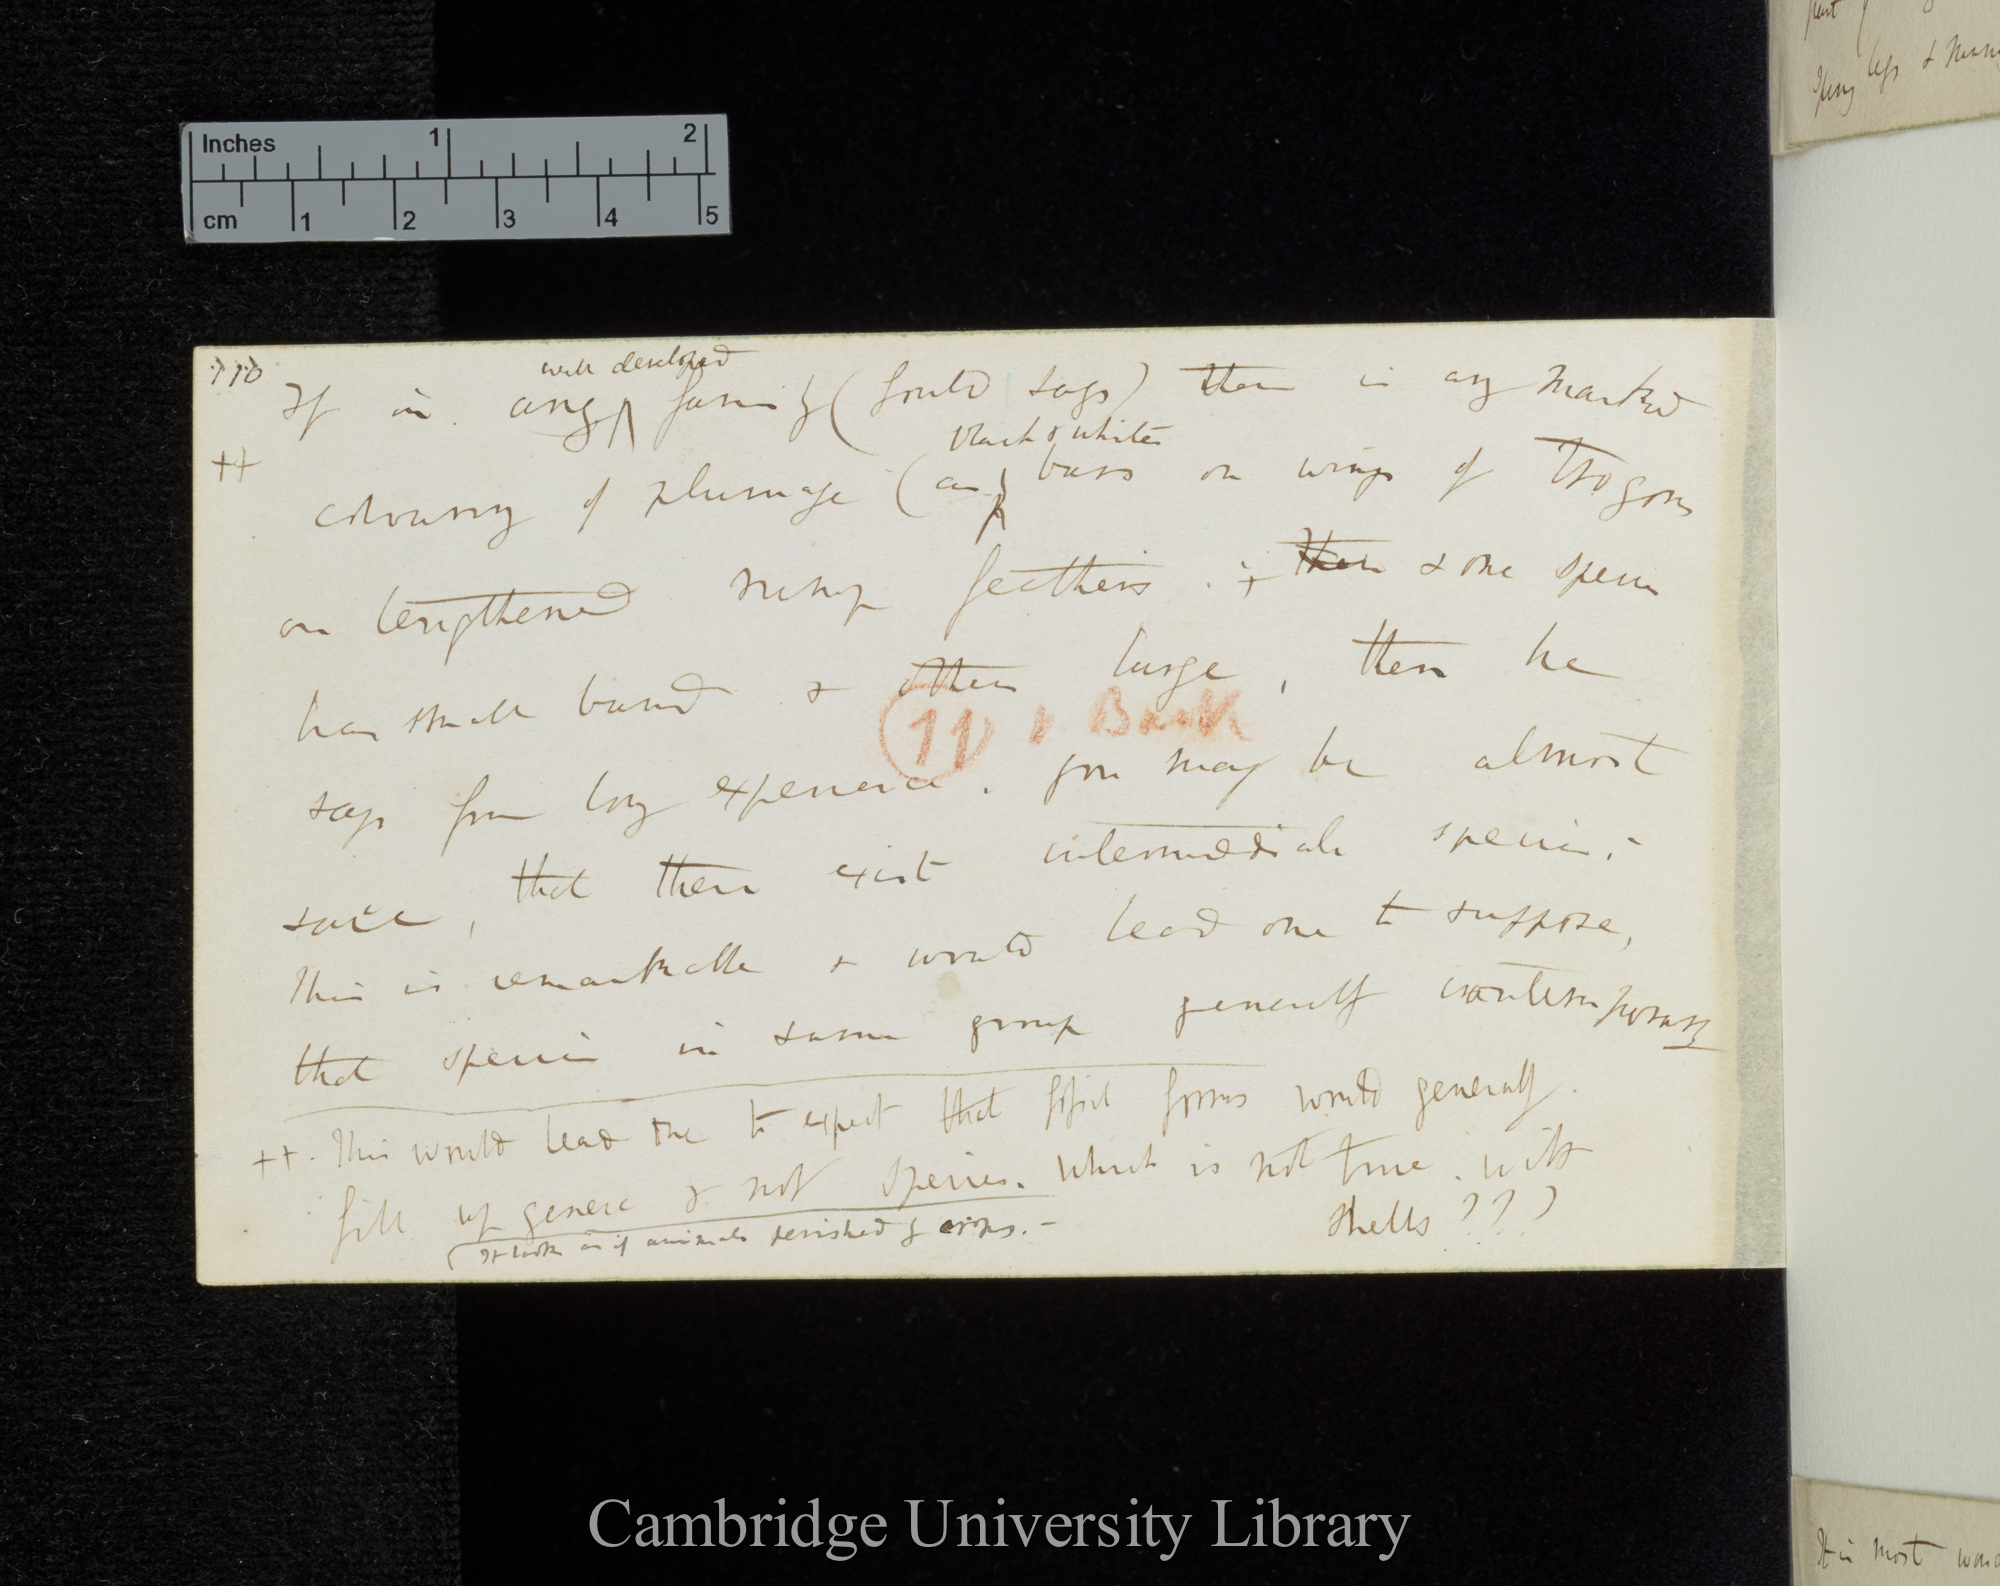 Inches 1 2
cm 1 2 3 4 5
part
legs &
110
well developed
If in any family (Gould says) there is any marked
++
black & white
colouring of plumage (as bars on wings of Trogons
or lengthened rump feathers. + there & one species
has small band & other large, then he
11 & Back
says from long experience. you may be almost
sure, that there exist intermediate species.—
This is remarkable & would lead one to suppose,
that species in same group generally contemporary
++. This would lead one to expect that fossil forms would generally
fill up genera & not species. which is not true. with
shells???
(It looks as if animals perished by crops.—
It is most
Cambridge University Library